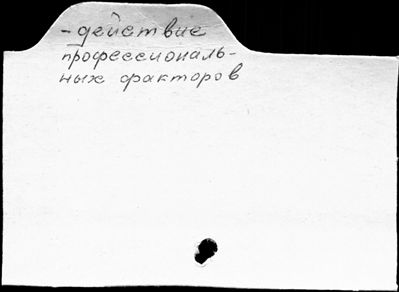 -действие
профессиональ-
ных факторов